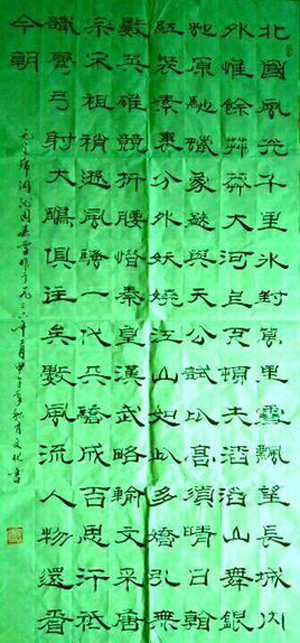 北國風光千里冰封萬里雪飄望長城内
外惟餘莽莽大河上下頓失滔滔山舞銀
蛇原馳蠟象欲與天公試比高須晴日看
紅裝素裹分外妖嬈江山如此多嬌引無
數英雄競折腰惜秦皇漢武略輸文采唐
宗宋祖稍遜風騷一代天驕成吉思汗祗
識彎弓射大鵰俱往矣數風流人物還看
今朝
毛主席詞沁園春雪作于一九三六年二月甲午年文化書